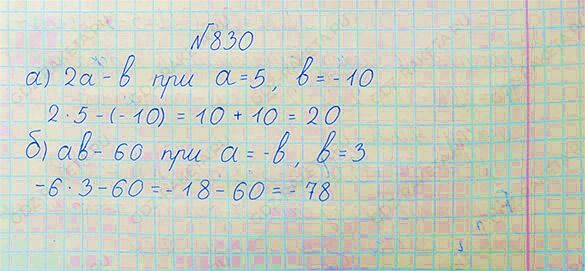 №830
а) 2a - b при a = 5, b = -10
2 · 5 - (- 10) = 10 + 10 = 20
б) ab - 60 при a = -b, b = 3
-6 · 3 - 60 = - 18 - 60 = - 78